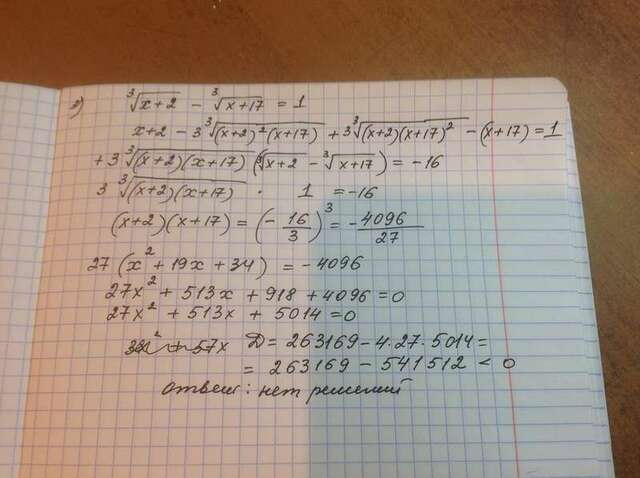 2) ∛(x+2) - ∛(x+17) = 1
x+2 - 3∛((x+2)²(x+17)) + 3∛((x+2)(x+17)²) - (x+17) = 1
+3∛((x+2)(x+17)) (∛(x+2) - ∛(x+17)) = -16
3∛((x+2)(x+17)) · 1 = -16
(x+2)(x+17) = (-16/3)³ = -4096/27
27(x² + 19x + 34) = -4096
27x² + 513x + 918 + 4096 = 0
27x² + 513x + 5014 = 0
Д = 263169 - 4·27·5014 =
= 263169 - 541512 < 0
ответ: нет решений